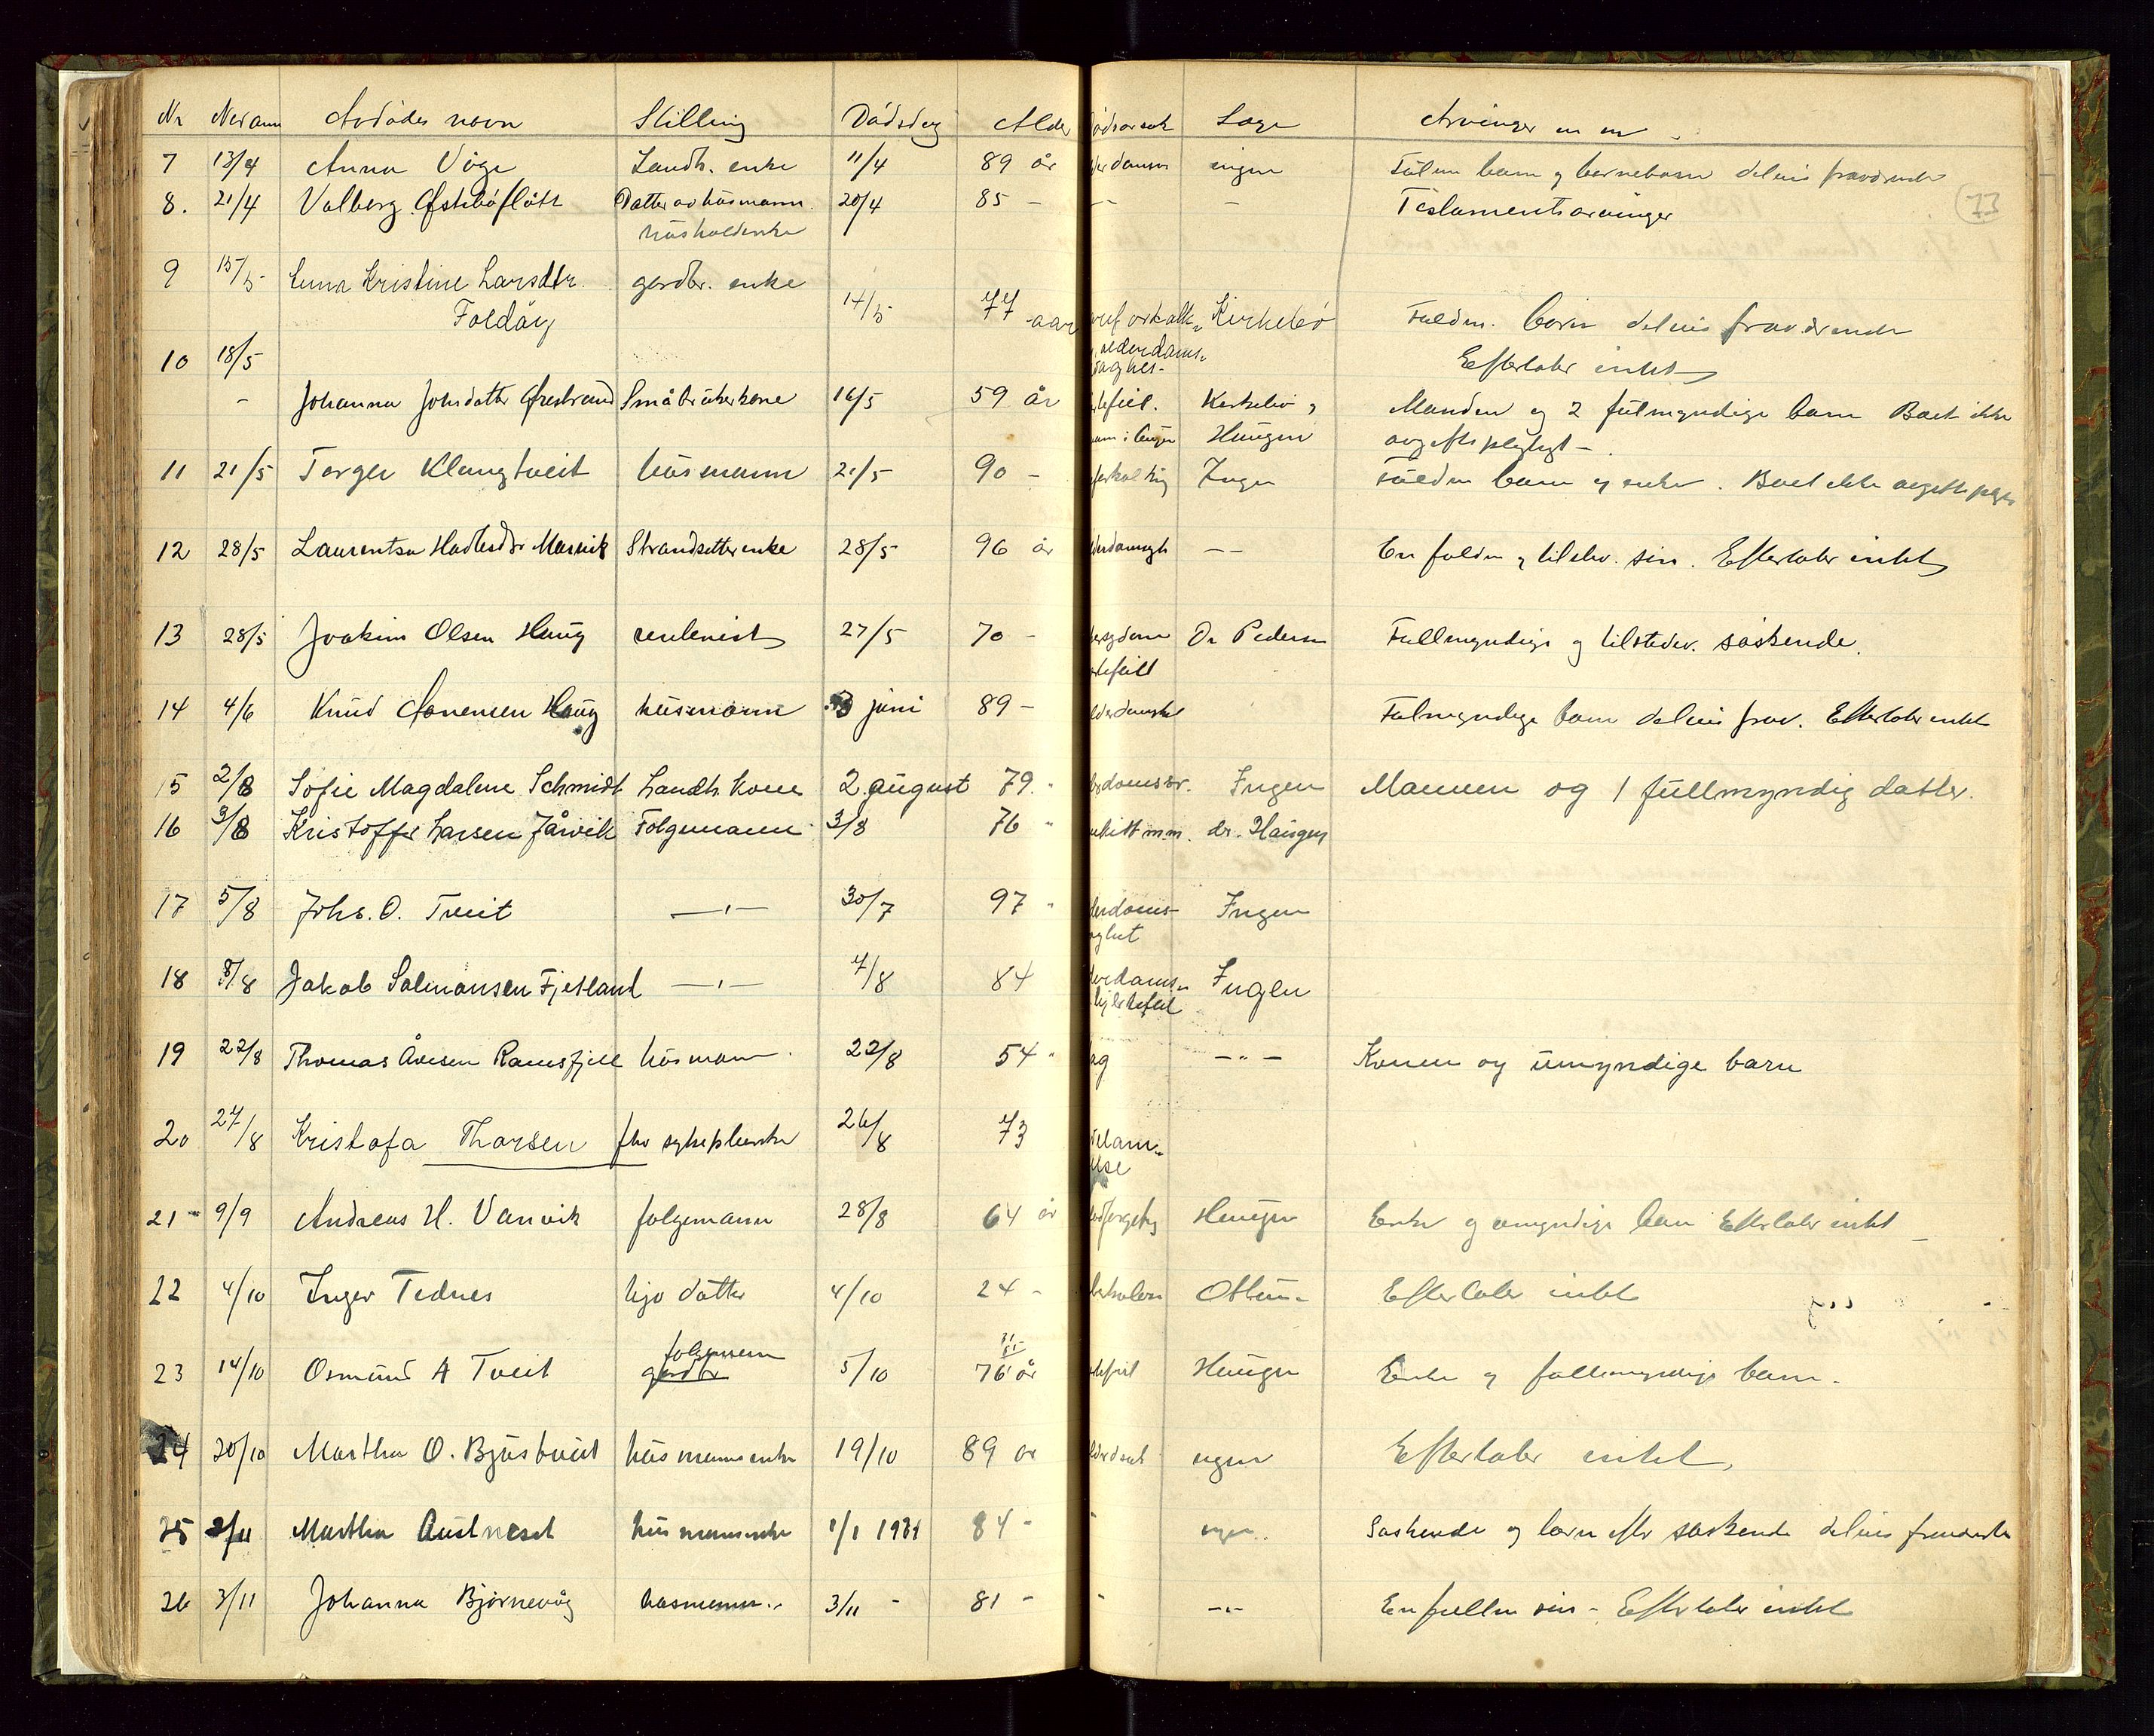 Nr Nedann Avdødes navn Stilling Dødsdag Alder Dødsårsak Læge Arvinger m m
73
7 13/4 Anna Våge Landh. enke 11/4 89 år ingen Fulm barn og barnebarn delvis fraværende
8. 21/4 Valborg Østebøflått Datter av husmann 20/4 85 - -- - Testamentsarvinger
husholderske
9 15/5 Enna Kristine Larsdtr. gardbr. enke 14/5 77 aar Kirkebø Fuldm. born delvis fraværende
Foldøy alderdoms-
10 18/5 Efterlater intet
- Johanna Johsdatter Øvrebrand Småbrukerkone 16/5 59 år Kirkebø og Manden og 2 fulmyndige barn Boet ikke
Haugen avgiftspligtigt -
11 21/5 Torger Klungtveit husmann 21/5 90 - Ingen Fuldm barn og enke. Boet ikke avgiftsplig
12 28/5 Laurentsa Hadlesdtr Marvik Strandsitterenke 28/5 96 år -- En fuldm og tilstev. søn. Efterlater intet
13 28/5 Joakim Olsen Haug rentenist 27/5 70 - Dr Pedersen Fullmyndige og tilstedev. søskende.
14 4/6 Knud Sørensen Haug husmann 3 juni 89 - Fulmyndige barn delvis frav. Efterlater intet
15 2/8 Sofie Magdalene Schmidt Landh. kone 2. august 79 " Ingen Mannen og 1 fullmyndig datter.
16 3/8 Kristoffer Larsen Jårvik Folgemann 3/8 76 " dr. Haugen
17 5/8 Johs. O. Tveit —"— 30/7 97 " Ingen
18 8/8 Jakob Salmonsen Fjetland —"— 7/8 84 Ingen
19 22/8 Thomas Åvesen Ramsfjell husmann 22/8 54 " -"- Konen og umyndige barn
20 27/8 Kristofa Thorsen fhv sykepleierske 26/8 73
21 9/9 Andreas H. Vanvik folgemann 28/8 64 år Haugen Enke og umyndige barn Efterlater intet
22 4/10 Inger Tednes hjv datter 4/10 24 - Ottum Efterlater intet
23 14/10 Osmund A Tveit folgemann gardbr 5/10 76 år Haugen Enke og fullmyndige barn.
24 20/10 Martha O. Bjustveit husmannsenke 19/10 89 år ingen Efterlater intet
25 2/11 Martha Austneset husmannsenke 1/1 1931 84 - " ingen Søskende og barn efter søskende delvis fraværende
26 3/11 Johanna Bjørnevåg husmanns.. 3/11 - 81 - " -"- En fullm søn - Efterlater intet